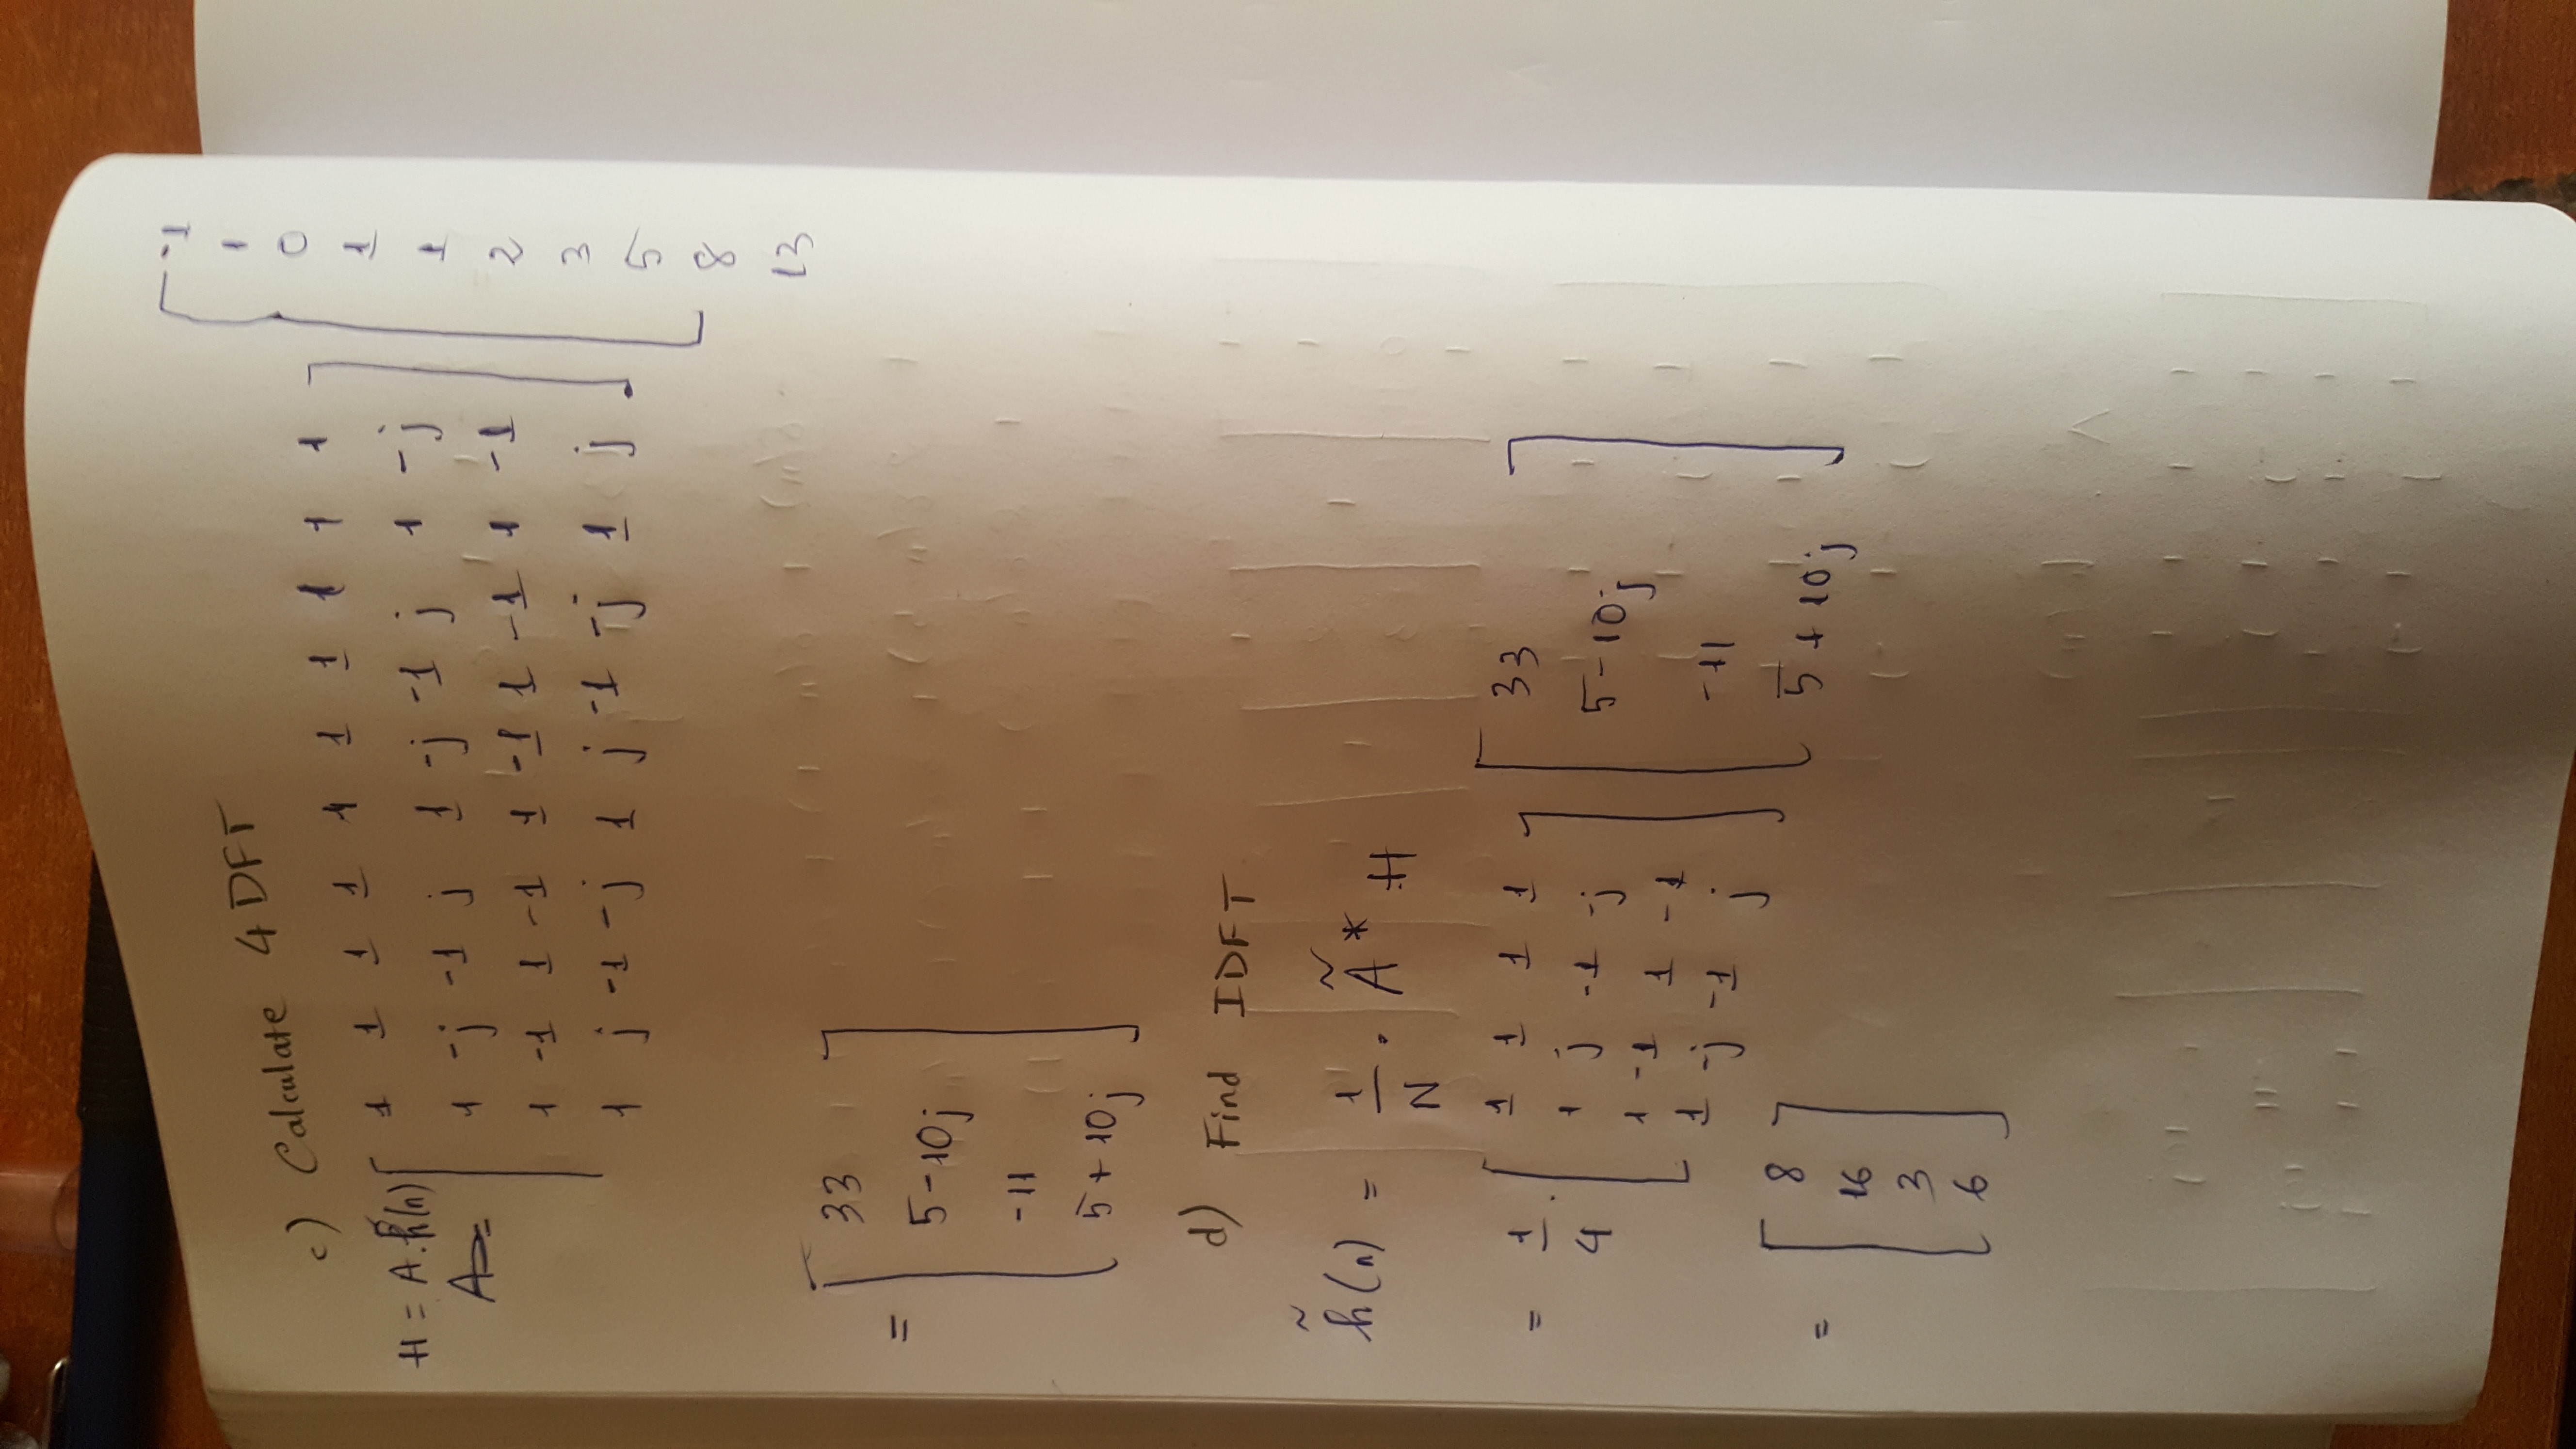 c) Calculate 4 DFT
H = A.h̃(n) [ 1 1 1 1 1 1 1 1 1 1 ] [ -1
A = 1 -j -1 j 1 -j -1 j 1 -j 1
1 -1 1 -1 1 -1 1 -1 1 -1 0
1 j -1 -j 1 j -1 -j 1 j 1
1
2
3
5
8
13
= [ 33
5-10j
-11
5+10j ]
d) Find IDFT
h̃(n) = 1/N . Ã* H
= 1/4 . [ 1 1 1 1 ] [ 33 ]
1 j -1 -j 5-10j
1 -1 1 -1 -11
1 -j -1 j 5+10j
= [ 8
16
3
6 ]